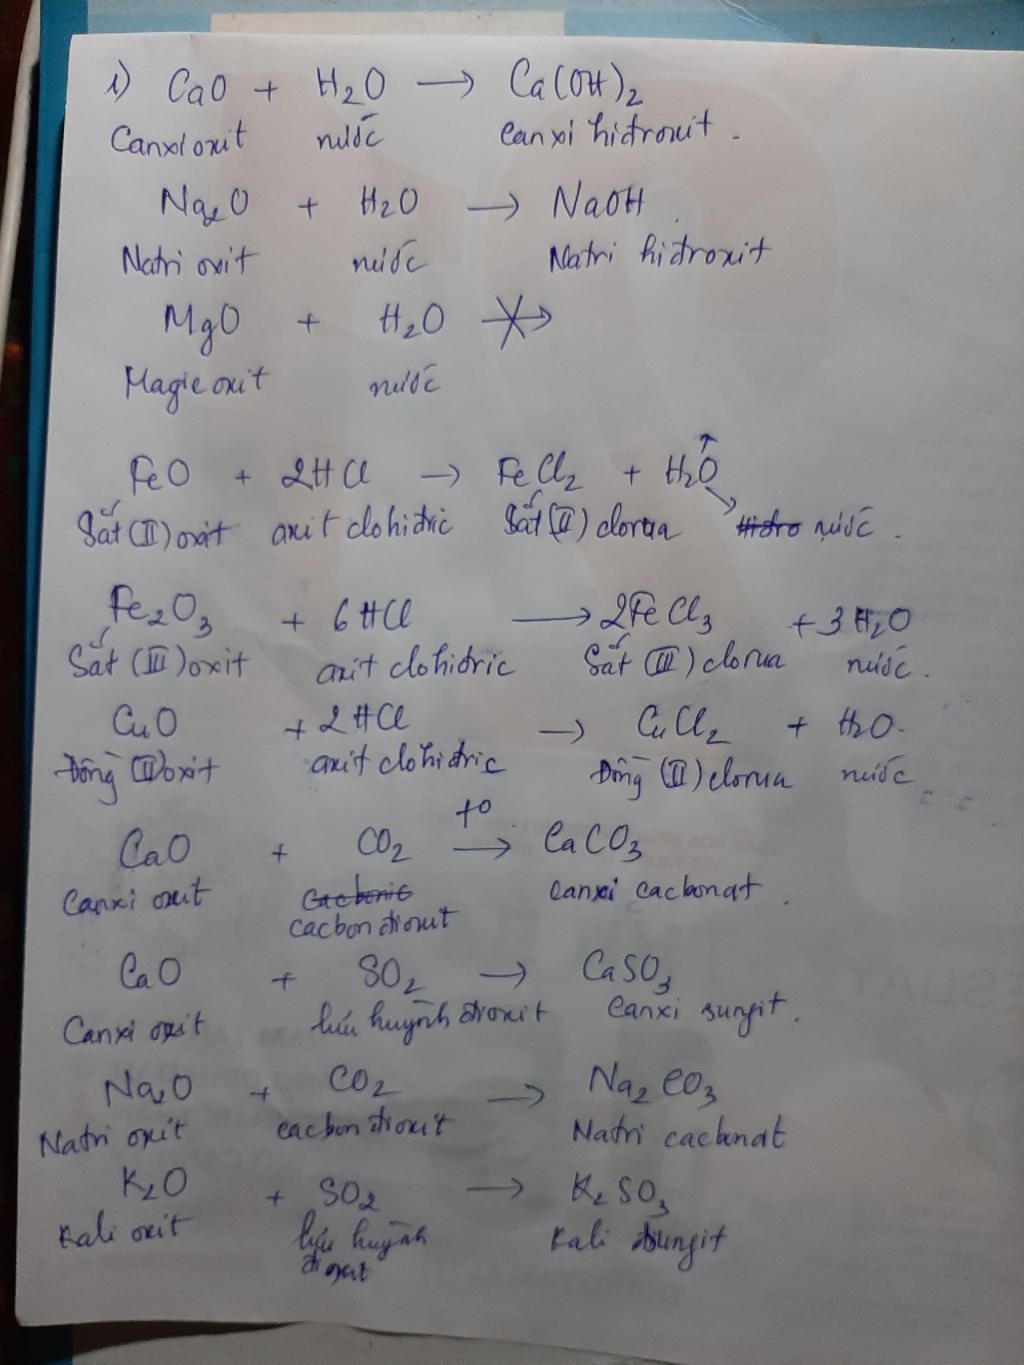 1) CaO + H₂O → Ca(OH)₂
Canxi oxit nước Canxi hiđroxit.
Na₂O + H₂O → NaOH.
Natri oxit nước Natri hiđroxit
MgO + H₂O
Magie oxit nước
FeO + 2HCl → FeCl₂ + H₂O ↑
Sắt (II) oxit axit clohiđric Sắt (II) clorua nước.
Fe₂O₃ + 6HCl → 2FeCl₃ + 3H₂O
Sắt (III) oxit axit clohiđric Sắt (III) clorua nước.
CuO + 2HCl → CuCl₂ + H₂O.
Đồng (II) oxit axit clohiđric Đồng (II) clorua nước
t⁰
CaO + CO₂ → CaCO₃
Canxi oxit Cacbonic Canxi cacbonat.
cacbon đioxit
CaO + SO₂ → CaSO₃
Canxi oxit lưu huỳnh đioxit Canxi sungit.
Na₂O + CO₂ → Na₂CO₃
Natri oxit cacbon đioxit Natri cacbonat
K₂O + SO₂ → K₂SO₃
Kali oxit lưu huỳnh Kali sungit
đioxit